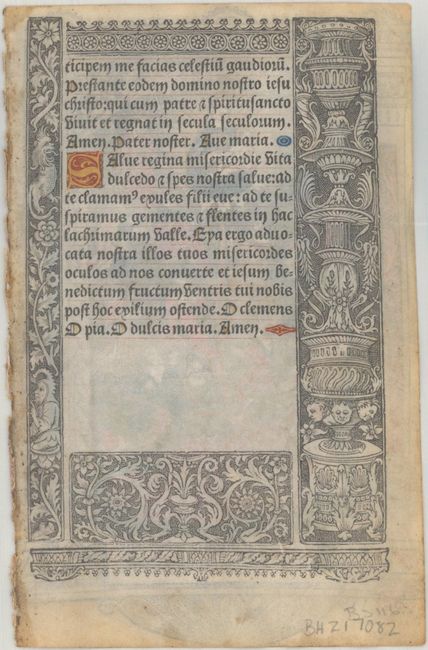 ticipem me facias celestiū gaudiorū.
Prestante eodem domino nostro iesu
christo: qui cum patre ⁊ spiritusancto
vivit et regnat in secula seculorum.
Amen. Pater noster. Ave maria.
SAlve regina misericordie vita
dulcedo ⁊ spes nostra salve: ad
te clamamꝰ exules filii eve: ad te su-
spiramus gementes ⁊ flentes in hac
lachrimarum valle. Eya ergo advo-
cata nostra illos tuos misericordes
oculos ad nos converte et iesum be-
nedictum fructum ventris tui nobis
post hoc exilium ostende. O clemens
O pia. O dulcis maria. Amen.
BHZ17082